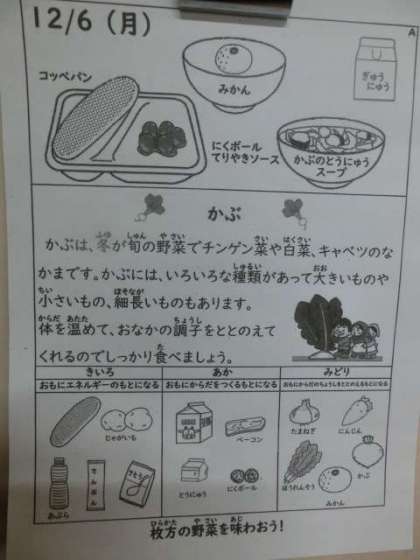 12/6（月）
A
コッペパン
みかん
ぎゅう
にゅう
にくボール
てりやきソース
かぶのとうにゅう
スープ
かぶ
かぶは、冬が旬の野菜でチンゲン菜や白菜、キャベツのな
かまです。かぶには、いろいろな種類があって大きいものや
小さいもの、細長いものもあります。
体を温めて、おなかの調子をととのえて
くれるのでしっかり食べましょう。
きいろ
あか
みどり
おもにエネルギーのもとになる
おもにからだをつくるもとになる
おもにからだのちょうしをととのえるもとになる
じゃがいも
ベーコン
たまねぎ
にんじん
あぶら
でんぷん
さとう
とうにゅう
にくボール
ほうれんそう
みかん
かぶ
枚方の野菜を味わおう！